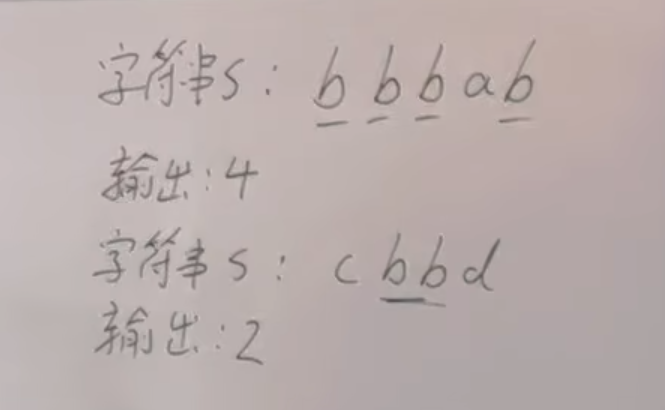 字符串s: bbbab
输出:4
字符串s: cbbd
输出:2